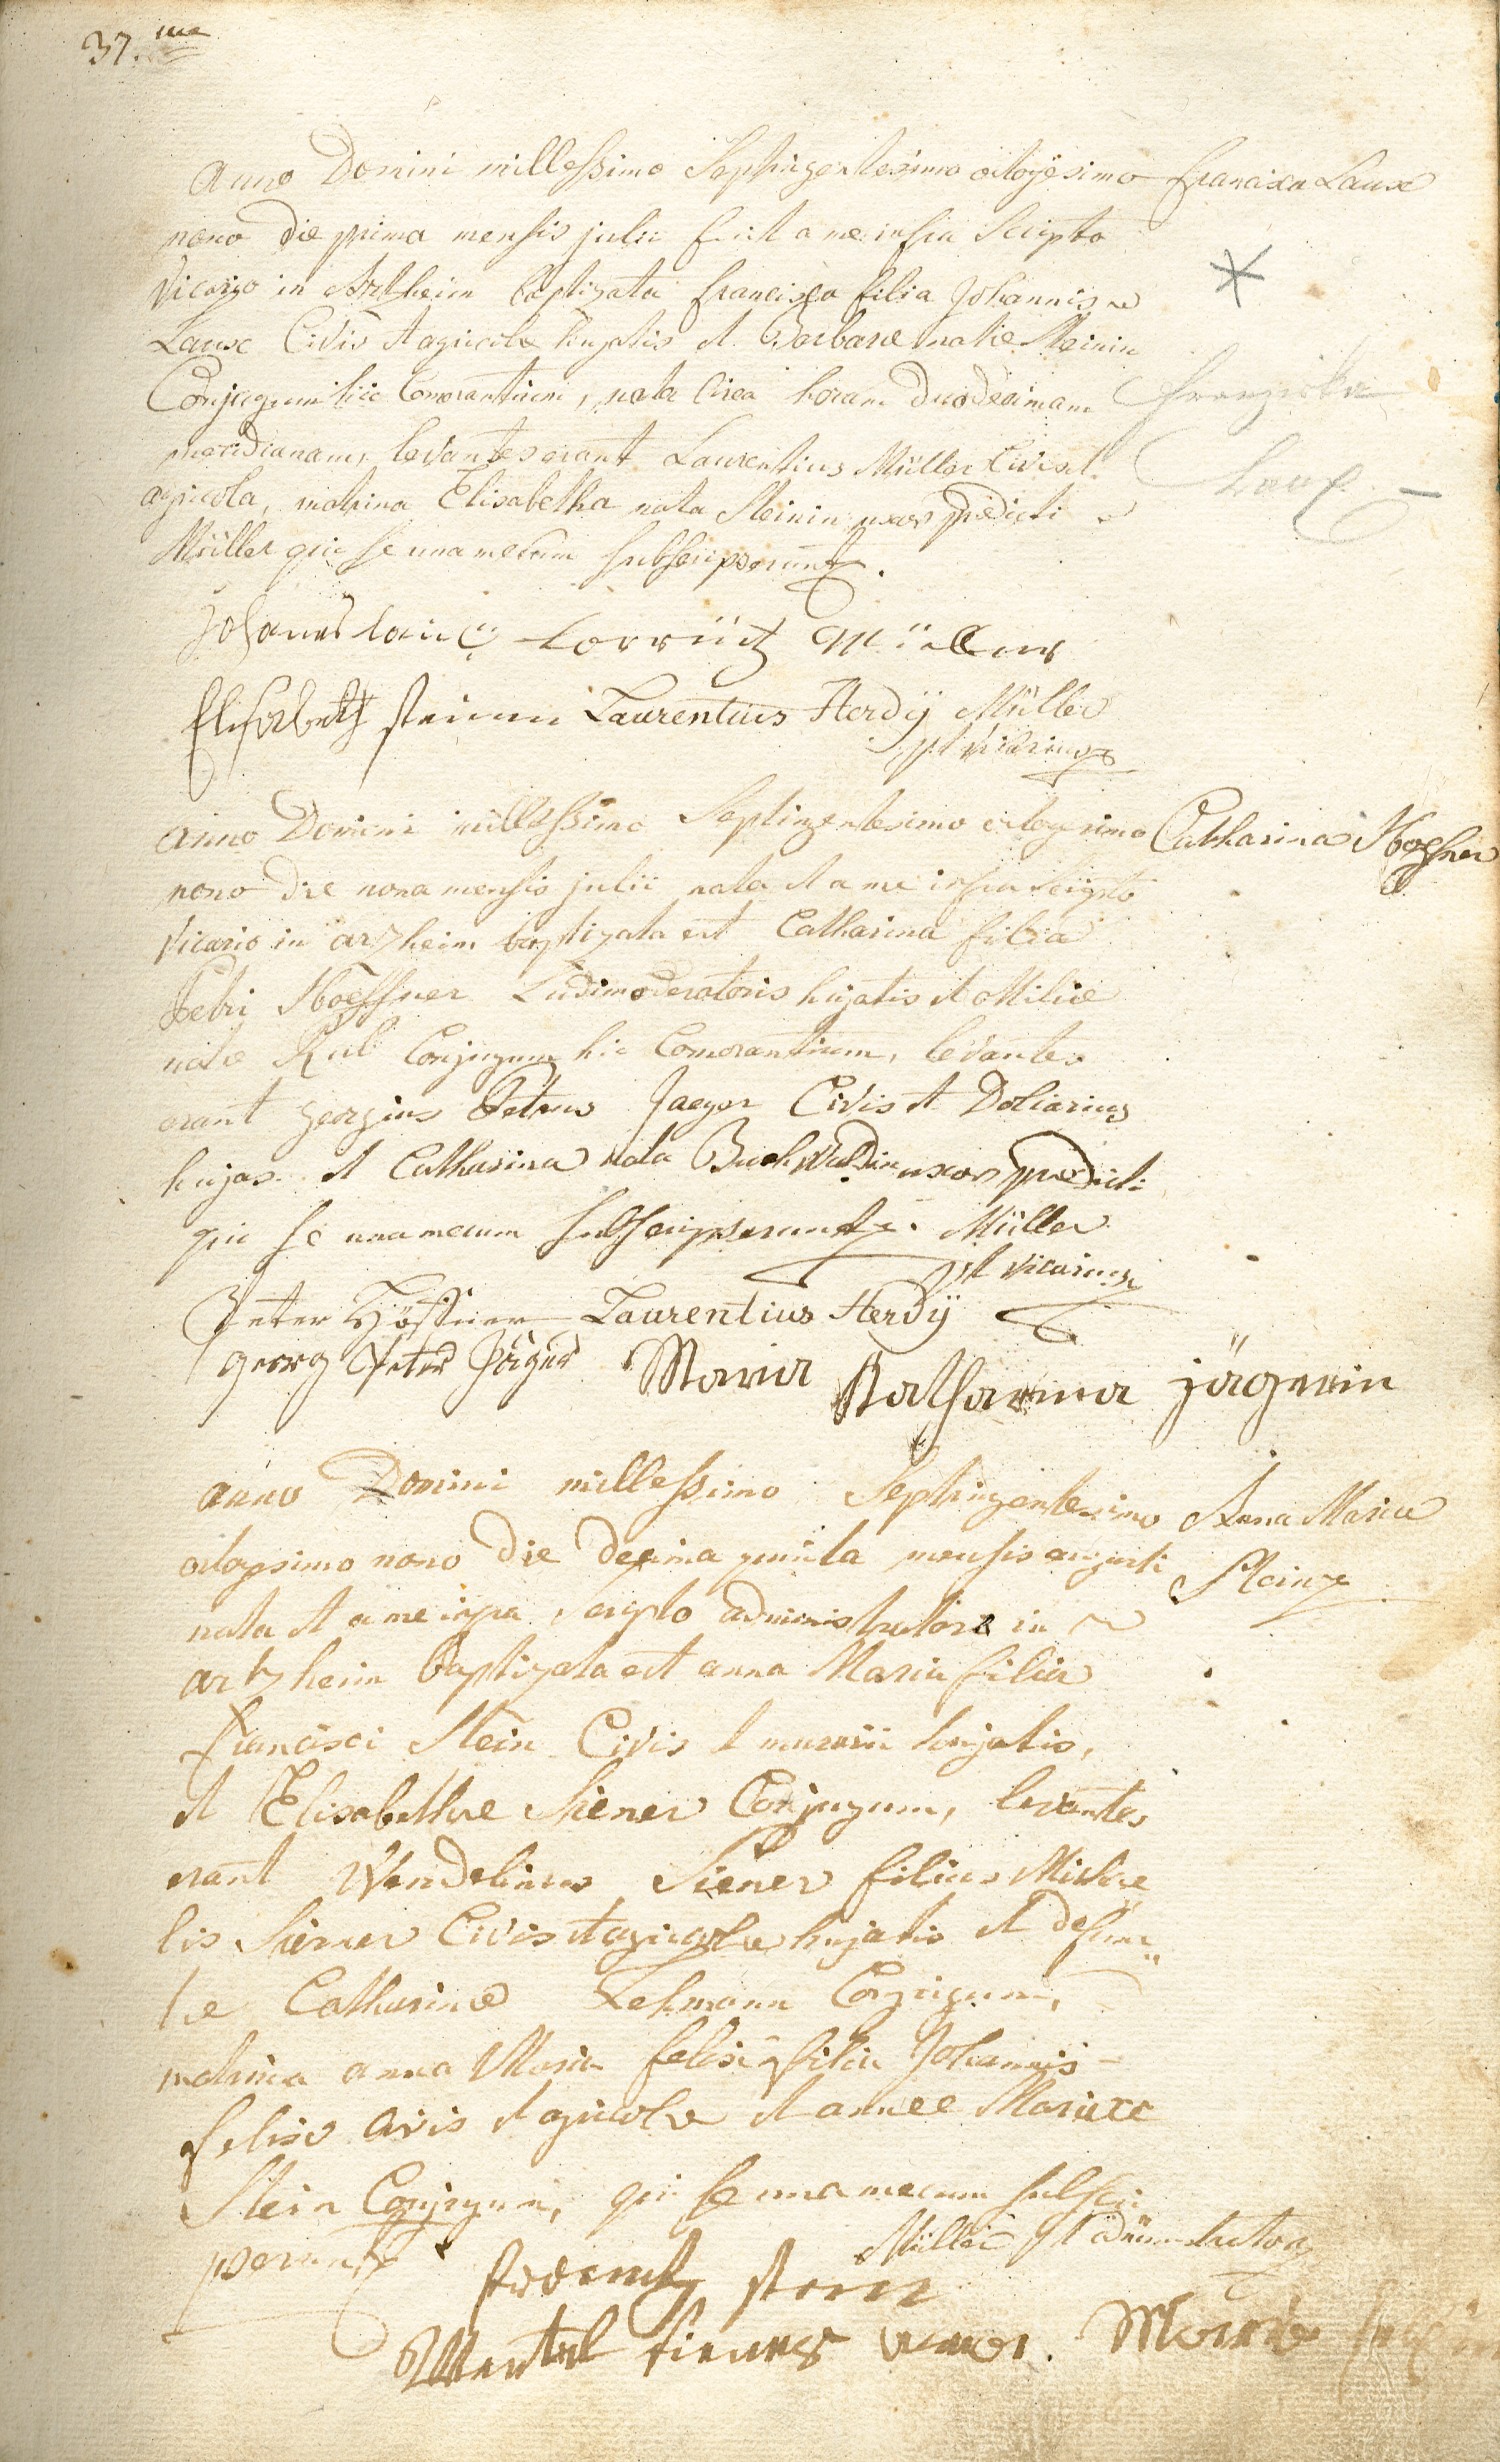 37.me
Anno Domini millessimo Septingentesimo octogesimo
Francisca Laux
nono die prima mensis julii fuit a me infra Scripto
Vicario in Artzheim baptizata francisca filia Johannis
Laux Civis et agricolæ hujatis et Barbaræ natæ Steinin
Conjugum hic Comorantium, nata circa horam duodecimam
Franziska
meridianam, levantes erant Laurentius Müller Civis et
Laux
agricola, matrina Elisabetha nata Steinin uxor prædicti
Müller qui se una mecum subscripserunt.
Johannes laux Lorrentz Müller
Elisabeth steinin Laurentius Herdÿ Müller
pt vicarius
anno Domini millessimo Septingentesimo octogesimo
Catharina Hoeffner
nono Die nona mensis julii nata et a me infra scripto
Vicario in artzheim baptizata est Catharina filia
Petri Hoeffner Ludimoderatoris hujatis et Otiliæ
natæ Kul Conjugum hic Comorantium, levantes
erant georgius Petrus Jaeger Civis et Doliarius
hujas et Catharina nata uxor prædicti
qui se una mecum subscripserunt. Müller
pt vicarius
Peter Höffner Laurentius Herdÿ
georg Peter Jäger Maria Katharina jägerin
anno Domini millessimo Septingentesimo
Anna Maria
octogesimo nono Die Decima quinta mensis augusti
Stein
nata et a me infra scripto administratore in
artzheim baptizata est anna Maria filia
francisci Stein Civis et murarii hujatis,
et Elisabethæ Siener Conjugum, levantes
erant Wendelinus Siener filius Michæ
lis Siener Civis et agricolæ hujatis et defunc
tæ Catharinæ Lehmann Conjugum,
matrina anna Maria felix filia Johannis
felix Civis et agricolæ et annæ Mariæ
Stein Conjugum, qui se una mecum subscri
pserunt
Müller pt administrator
frantz stein
Wentel siener Maria